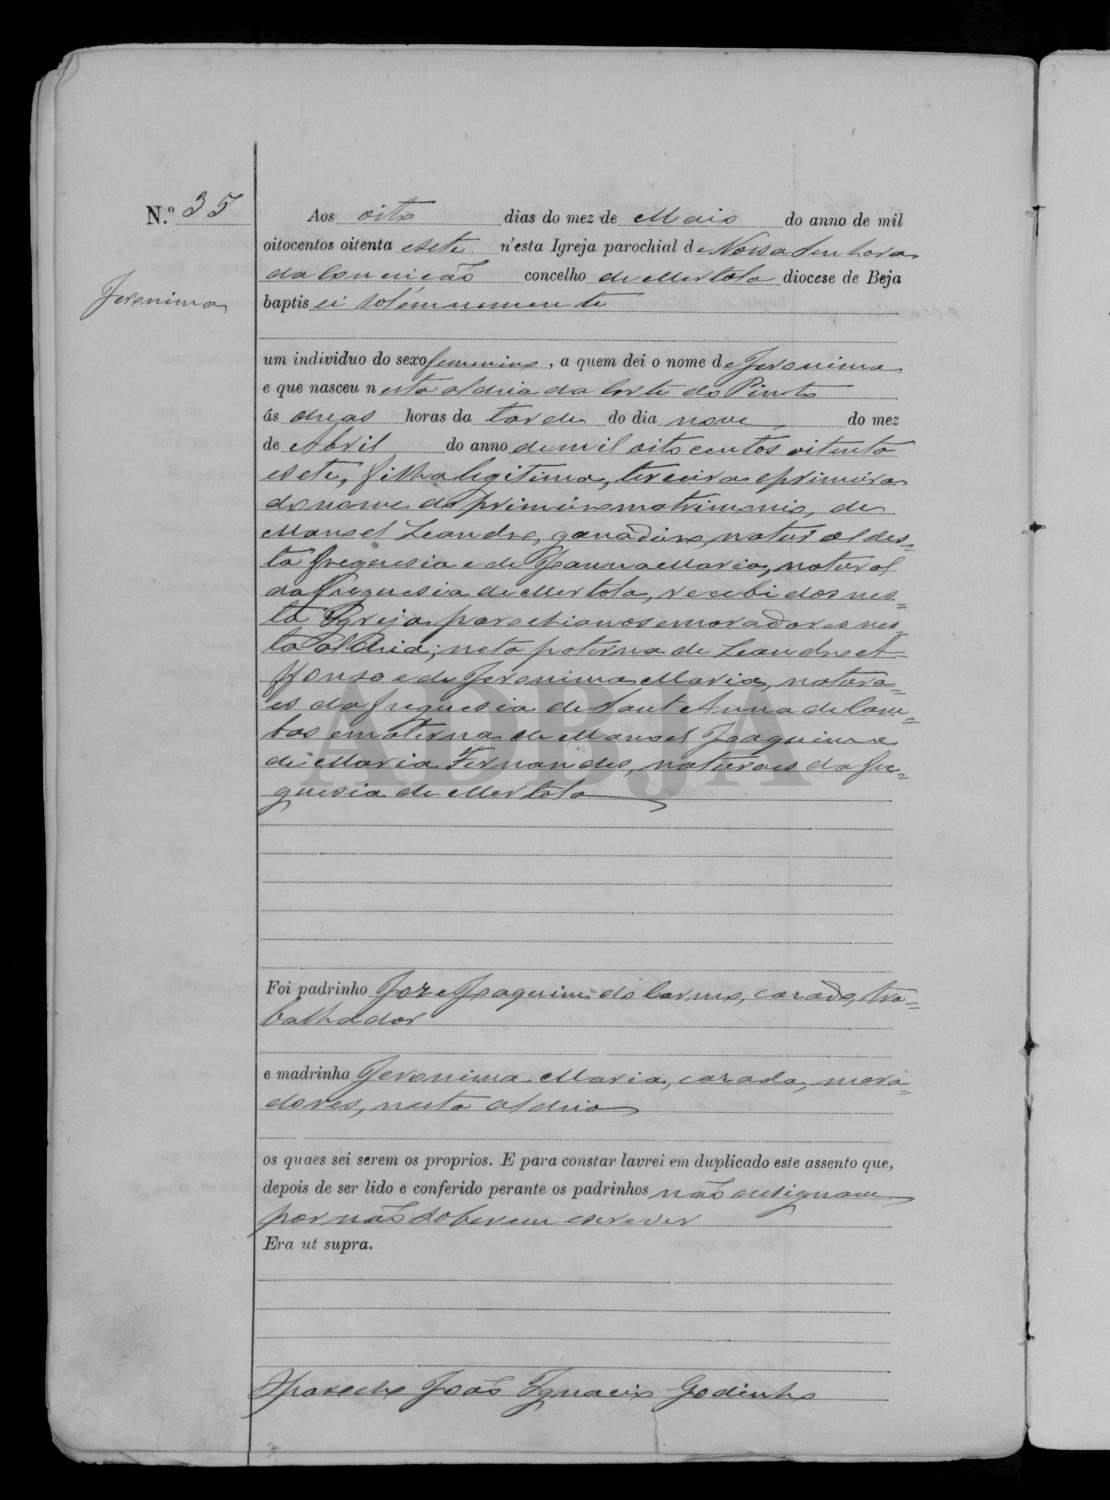 N.º 35
Aos oito dias do mez de Maio do anno de mil
oitocentos oitenta e sete n'esta Igreja parochial de Nossa Senhora
da Conceição concelho de Mertola diocese de Beja
Jeronima
baptisei solemnemente
um individuo do sexo femenino, a quem dei o nome de Jeronima
e que nasceu nesta aldeia da Corte do Pinto
ás duas horas da tarde do dia nove do mez
de Abril do anno de mil oito centos oitenta
e sete, filha legitima, terceira e primeira
do nome do primeiro matrimonio, de
Manoel Leandro, ganadeiro, natural des=
ta freguesia e de Joanna Maria, natural
da freguesia de Mertola, recebidos nes=
ta Igreja parochianos e moradores nes=
ta aldeia; neta paterna de Leandro A
ffonso e de Jeronima Maria, natura=
es da freguesia de Sant Anna de Cam=
bas e materna de Manoel Joaquim e
de Maria Fernandes, naturaes da fre=
guesia de Mertola
ADBJA
Foi padrinho Joze Joaquim do Carmo, cazado, tra=
balhador
e madrinha Jeronima Maria, cazada, mora=
dores, nesta aldeia
os quaes sei serem os proprios. E para constar lavrei em duplicado este assento que,
depois de ser lido e conferido perante os padrinhos não assignam
por não saberem escrever
Era ut supra.
O Parocho João Ignacio Godinho